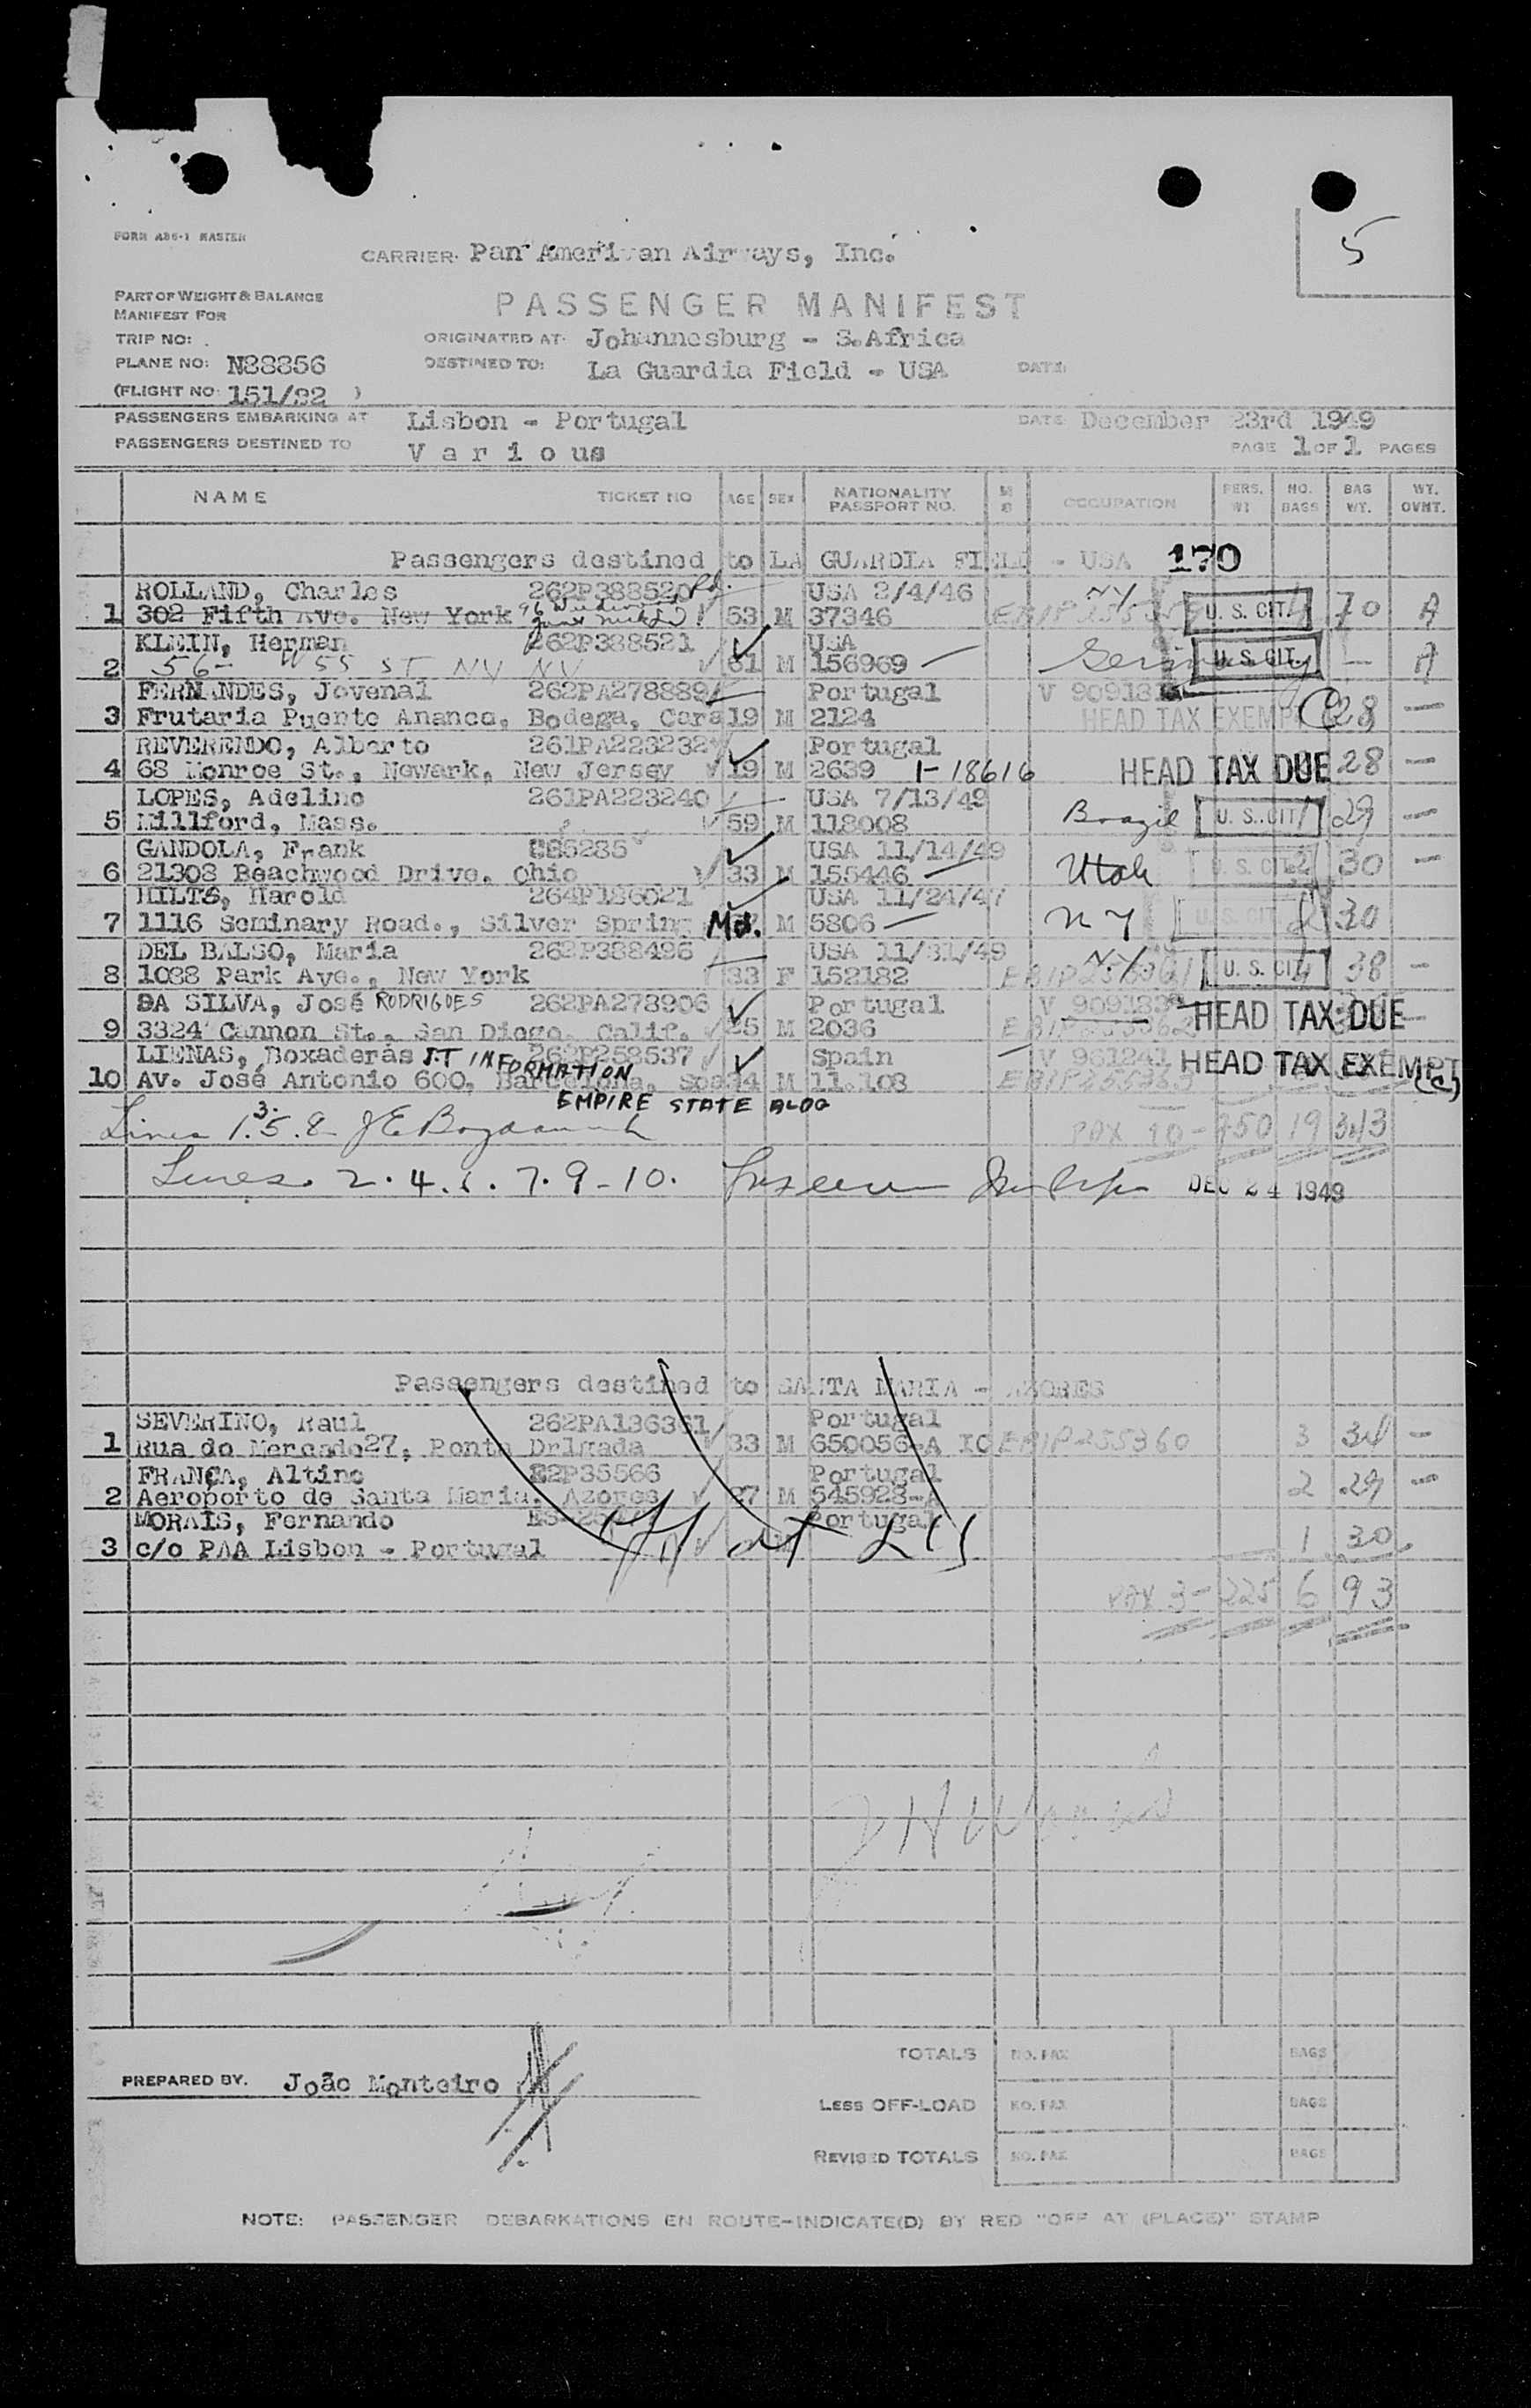 5
FORM ABS-1 MASTER
CARRIER. Pan American Airways, Inc.
PART OF WEIGHT & BALANCE
MANIFEST FOR
PASSENGER MANIFEST
TRIP NO:
ORIGINATED AT. Johannesburg - S.Africa
PLANE NO: N88856
DESTINED TO: La Guardia Field - USA DATE:
(FLIGHT NO: 151/92 )
PASSENGERS EMBARKING AT Lisbon - Portugal DATE December 23rd 1949
PASSENGERS DESTINED TO Various PAGE 1 OF 1 PAGES
NAME TICKET NO AGE SEX NATIONALITY PASSPORT NO. OCCUPATION PERS. WT NO. BAGS BAG WT. WT. OVHT.
Passengers destined to LA GUARDIA FIELD - USA 170
ROLLAND, Charles 262P388520 USA 2/4/46 NY
1 302 Fifth Ave. New York 53 M 37346 U. S. CIT. 4 70 A
KLEIN, Herman 262P388521 USA
2 56- W 55 ST NY NY 61 M 156969 Germany U. S. CIT. - A
FERNANDES, Jovenal 262PA278889 Portugal
3 Frutaria Puente Ananco, Bodega, Cara 19 M 2124 HEAD TAX EXEMPT C 28 -
REVERENDO, Alberto 261PA223232 Portugal
4 68 Monroe St., Newark, New Jersey 19 M 2639 1-18616 HEAD TAX DUE 28 -
LOPES, Adelino 261PA223240 USA 7/13/49
5 Millford, Mass. 59 M 118008 Brazil U. S. CIT 1 29 -
GANDOLA, Frank USA 11/14/49
6 21308 Beachwood Drive. Ohio 33 M 155446 Utah U. S. CIT 2 30 -
HILTS, Harold 264P126021 USA 11/24/47
7 1116 Seminary Road., Silver Spring Md. M 5806 NY U. S. CIT. 2 30
DEL BALSO, Maria 262P388496 USA 11/31/49 N.Y.
8 1088 Park Ave., New York 33 F 152182 U. S. CIT 4 38 -
DA SILVA, José RODRIGUES 262PA278906 Portugal
9 3324 Cannon St., San Diego, Calif. 25 M 2036 HEAD TAX DUE
LIENAS, Boxaderás J.T INFORMATION 262P258537 Spain V 961241
10 Av. José Antonio 600, Barcelona, Spa 34 M 11.108 HEAD TAX EXEMPT (C)
EMPIRE STATE BLDG
Lines 1.3.5.8 PAX 10- 750 19 343
Lines 2.4.6.7.9-10. DEC 24 1949
Passengers destined to SANTA MARIA - AZORES
SEVERINO, Raul 262PA136361 Portugal
1 Rua do Mercado 27, Ponta Delgada 33 M 650056-A IC EBIP255360 3 34 -
FRANÇA, Altino E2P35566 Portugal
2 Aeroporto de Santa Maria. Azores 27 M 545928-A 2 29 -
MORAIS, Fernando Portugal
3 c/o PAA Lisbon - Portugal 1 30
Off at LIS
PAX 3- 225 6 93
TOTALS NO. PAX BAGS
PREPARED BY. João Monteiro
LESS OFF-LOAD NO. PAX BAGS
REVISED TOTALS NO. PAX BAGS
NOTE: PASSENGER DEBARKATIONS EN ROUTE-INDICATE(D) BY RED "OFF AT (PLACE)" STAMP